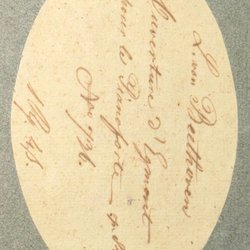 L. van Beethoven
Ouverture d'Egmont
pour le Pianoforte
No 1736.